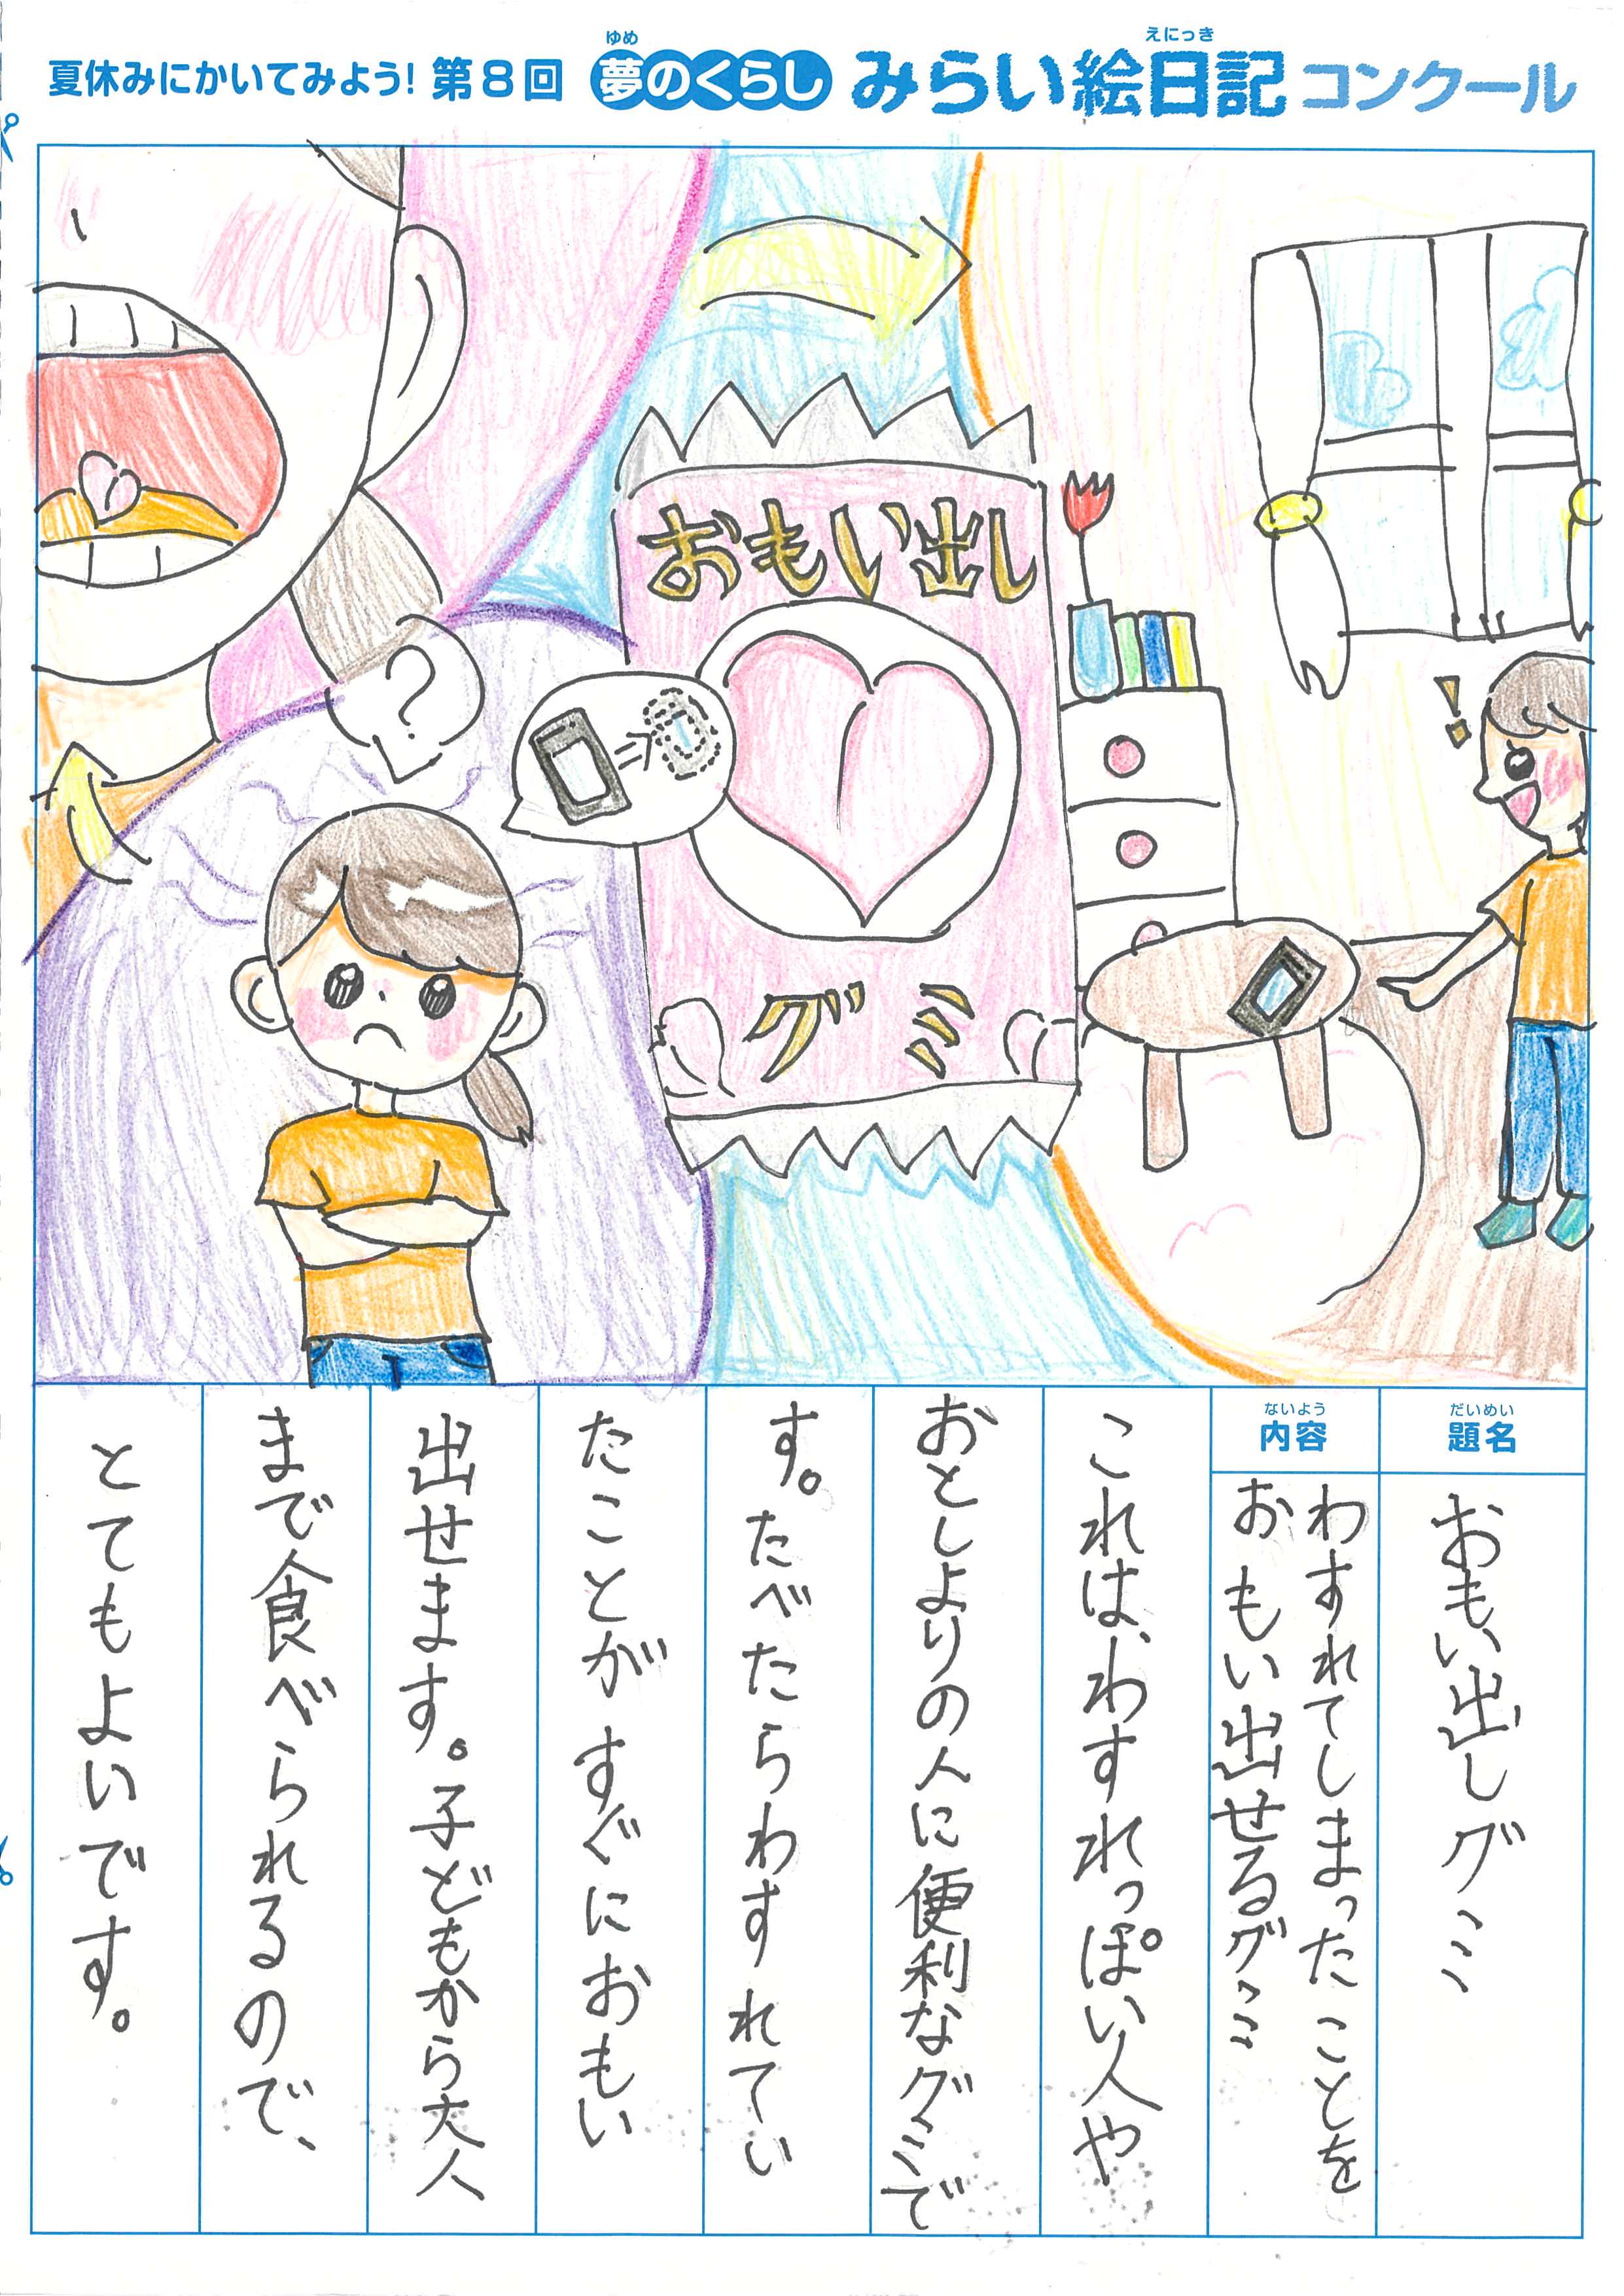 夏休みにかいてみよう！ 第8回 夢のくらし みらい絵日記 コンクール
ゆめ
えにっき
おもい出し
グミ
?
!
だいめい
題名
おもい出しグミ
ないよう
内容
わすれてしまったことを
おもい出せるグミ
これは、わすれっぽい人や
おとしよりの人に便利なグミで
す。たべたらわすれてい
たことがすぐにおもい
出せます。子どもから大人
まで食べられるので、
とてもよいです。